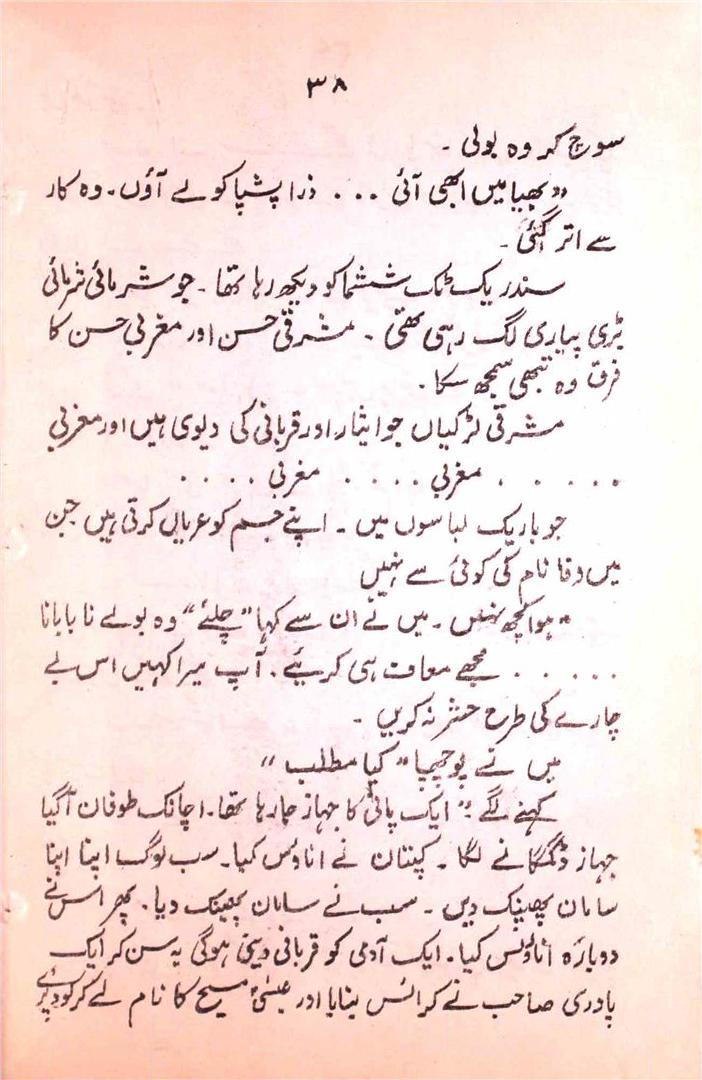 ۳۸
سوچ کر وہ بولی ۔
”بھیا میں ابھی آئی ... ذرا پشپا کو لے آؤں۔ وہ کار
سے اتر گئی ۔
سندر یک ٹک ششما کو دیکھ رہا تھا ۔ جو شرمائی شرمائی
بڑی پیاری لگ رہی تھی ۔ مشرقی حسن اور مغربی حسن کا
فرق وہ تبھی سمجھ سکا ۔
مشرقی لڑکیاں جو ایثار اور قربانی کی دیوی ہیں اور مغربی
. . . . . مغربی . . . . مغربی . . . .
جو باریک لباسوں میں ۔ اپنے جسم کو عریاں کرتی ہیں جن
میں وفا نام کی کوئی شے نہیں
”ہوا کچھ نہیں ۔ میں نے ان سے کہا ”چلئے“ وہ بولے نا بابا نا
. . . . . مجھے معاف ہی کریئے ۔ آپ میرا کہیں اس بے
چارے کی طرح حشر نہ کریں ۔
میں نے پوچھا ”کیا مطلب“
کہنے لگے : ”ایک پانی کا جہاز جا رہا تھا ۔ اچانک طوفان آگیا
جہاز ڈگمگانے لگا ۔ کپتان نے اناؤنس کیا ۔ سب لوگ اپنا اپنا
سامان پھینک دیں ۔ سب نے سامان پھینک دیا ۔ پھر اس نے
دوبارہ اناؤنس کیا ۔ ایک آدمی کو قربانی دینی ہوگی یہ سن کر ایک
پادری صاحب نے کراس بنایا اور عیسیٰ مسیح کا نام لے کر کود پڑے